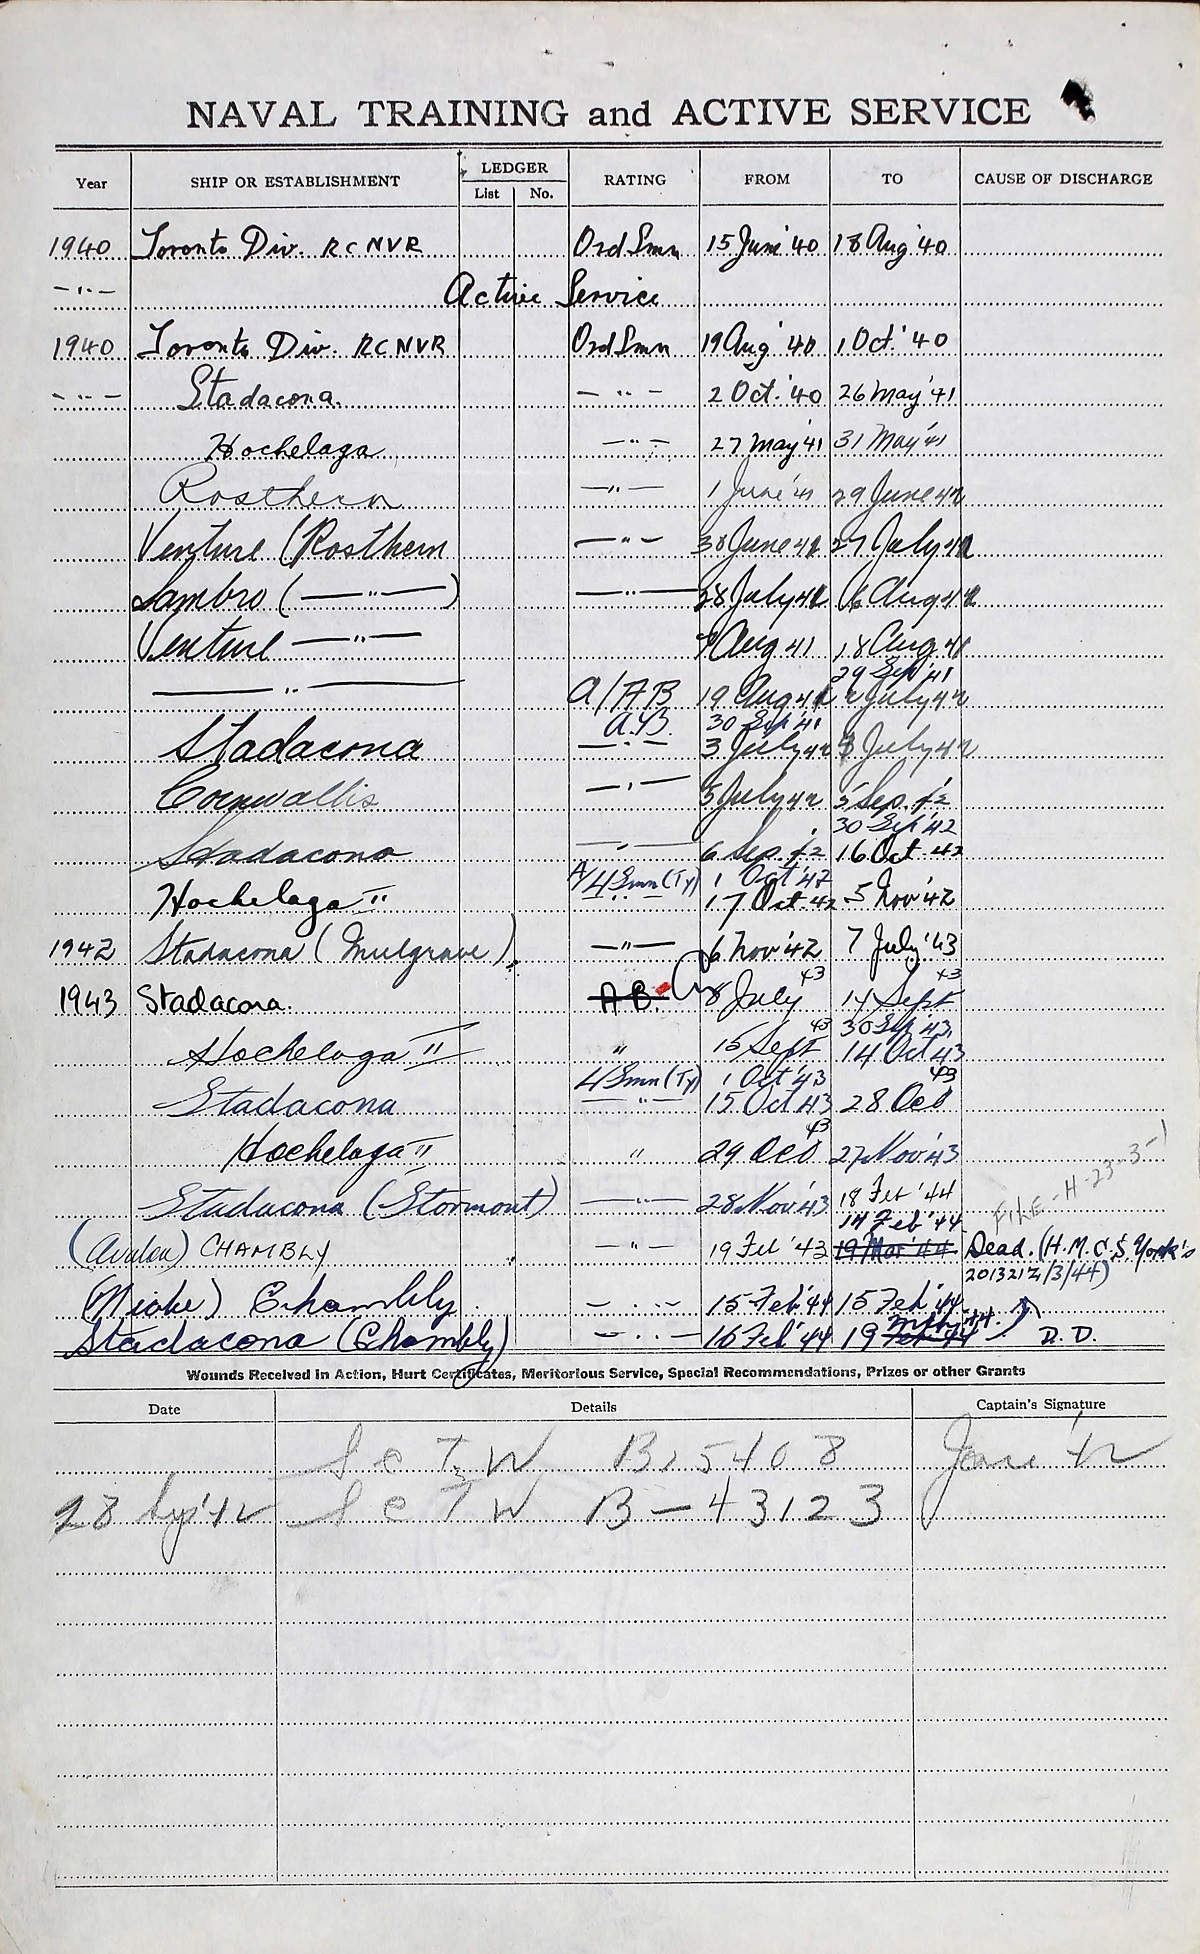 NAVAL TRAINING and ACTIVE SERVICE
Year SHIP OR ESTABLISHMENT LEDGER List No. RATING FROM TO CAUSE OF DISCHARGE
1940 Toronto Div. RCNVR Ord Smn 15 June '40 18 Aug '40
-"- Active Service
1940 Toronto Div. RCNVR Ord Smn 19 Aug '40 1 Oct. '40
-"- Stadacona. -"- 2 Oct. '40 26 May '41
Hochelaga -"- 27 May '41 31 May '41
Rosthern -"- 1 June '41 29 June 41
Venture (Rosthern -"- 30 June 41 27 July 41
Sambro ( -"- ) -"- 28 July 41 6 Aug 41
Venture -"- 7 Aug 41 18 Aug 41
29 Sep '41
-"- A/AB 19 Aug 41 2 July 42
A.B. 30 Sep '41
Stadacona -"- 3 July 42 July 42
Cornwallis -"- 5 July 42 5 Sep. 42
30 Sep '42
Stadacona -"- 6 Sep. 42 16 Oct. 42
A/LSmn (Ty) 1 Oct '42
Hochelaga II -"- 17 Oct. 42 5 Nov '42
1942 Stadacona (Mulgrave) -"- 6 Nov '42 7 July '43
1943 Stadacona. AB. 8 July 43 14 Sept 43
30 Sep '43
Hochelaga II " 15 Sept 43 14 Oct 43
LSmn (Ty) 1 Oct '43
Stadacona -"- 15 Oct 43 28 Oct 43
Hochelaga II " 29 Oct 43 27 Nov '43
Stadacona (Stormont) -"- 28 Nov '43 18 Feb '44
FILE-H-23-3-1
14 Feb '44
(Avalon) CHAMBLY -"- 19 Feb '43 19 Mar '44 Dead. (H.M.C.S. York's
201321Z/3/44)
(Niobe) Chambly -"- 15 Feb '44 15 Feb '44
Stadacona (Chambly) -"- 16 Feb '44 19 Feb '44 Mch 44. D.D.
Wounds Received in Action, Hurt Certificates, Meritorious Service, Special Recommendations, Prizes or other Grants
Date Details Captain's Signature
S C T W B 15408 June '42
28 Sep '42 S C T W B-43123